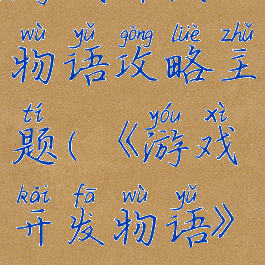 wù yǔ gōng lüè zhǔ
物语攻略主
tí yóu xì
题(《游戏
kāi fā wù yǔ
开发物语》